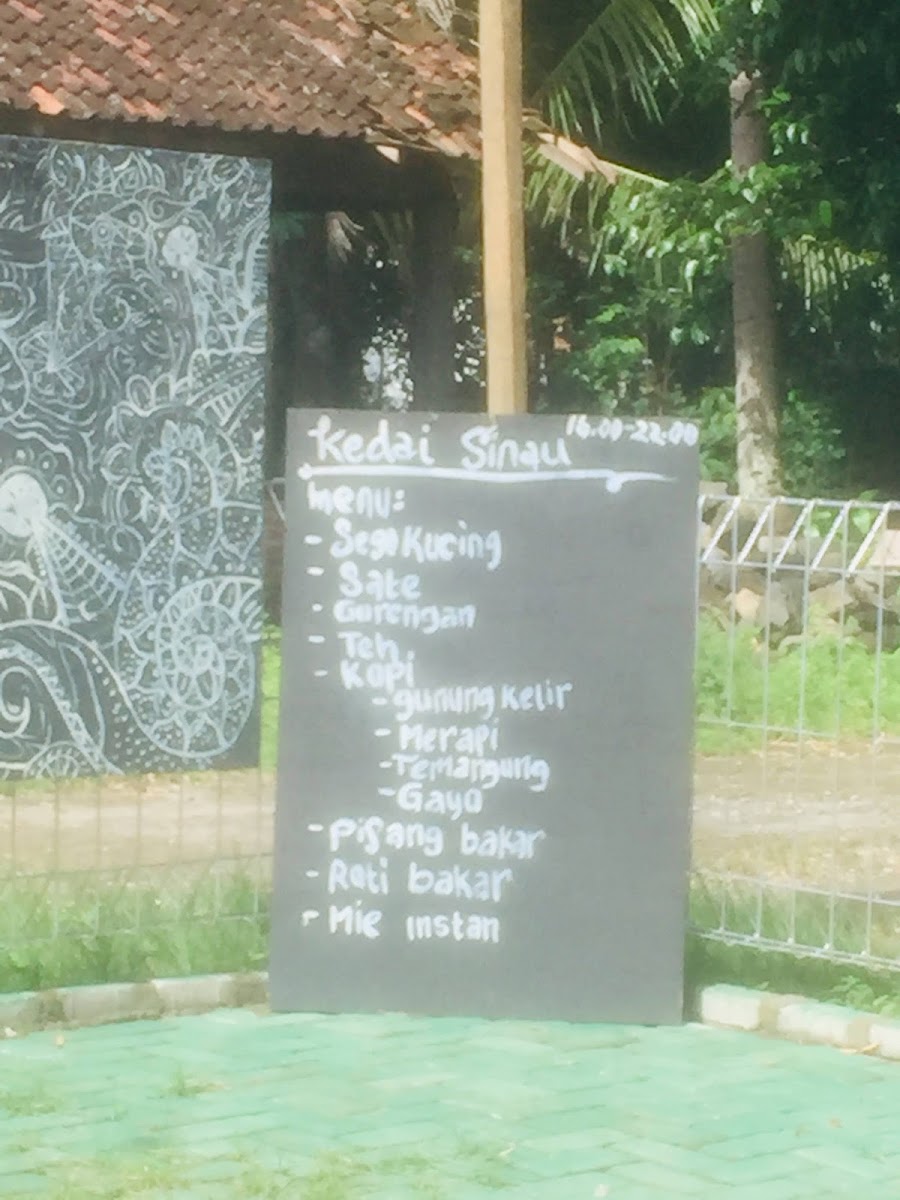 Kedai Sinau 16.00-22.00
Menu:
- Sego Kucing
- Sate
- Gorengan
- Teh
- Kopi
- Gunung Kelir
- Merapi
- Temangung
- Gayo
- Pisang bakar
- Roti bakar
- Mie instan